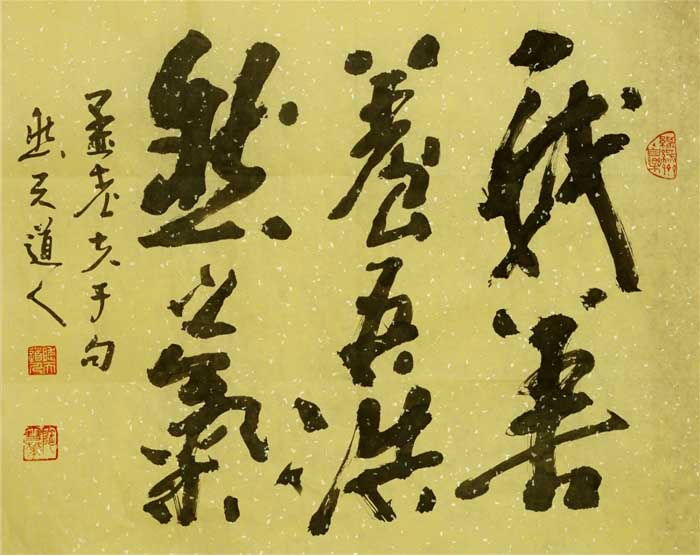 我善
養吾浩
然之氣
孟老夫子句
天道人